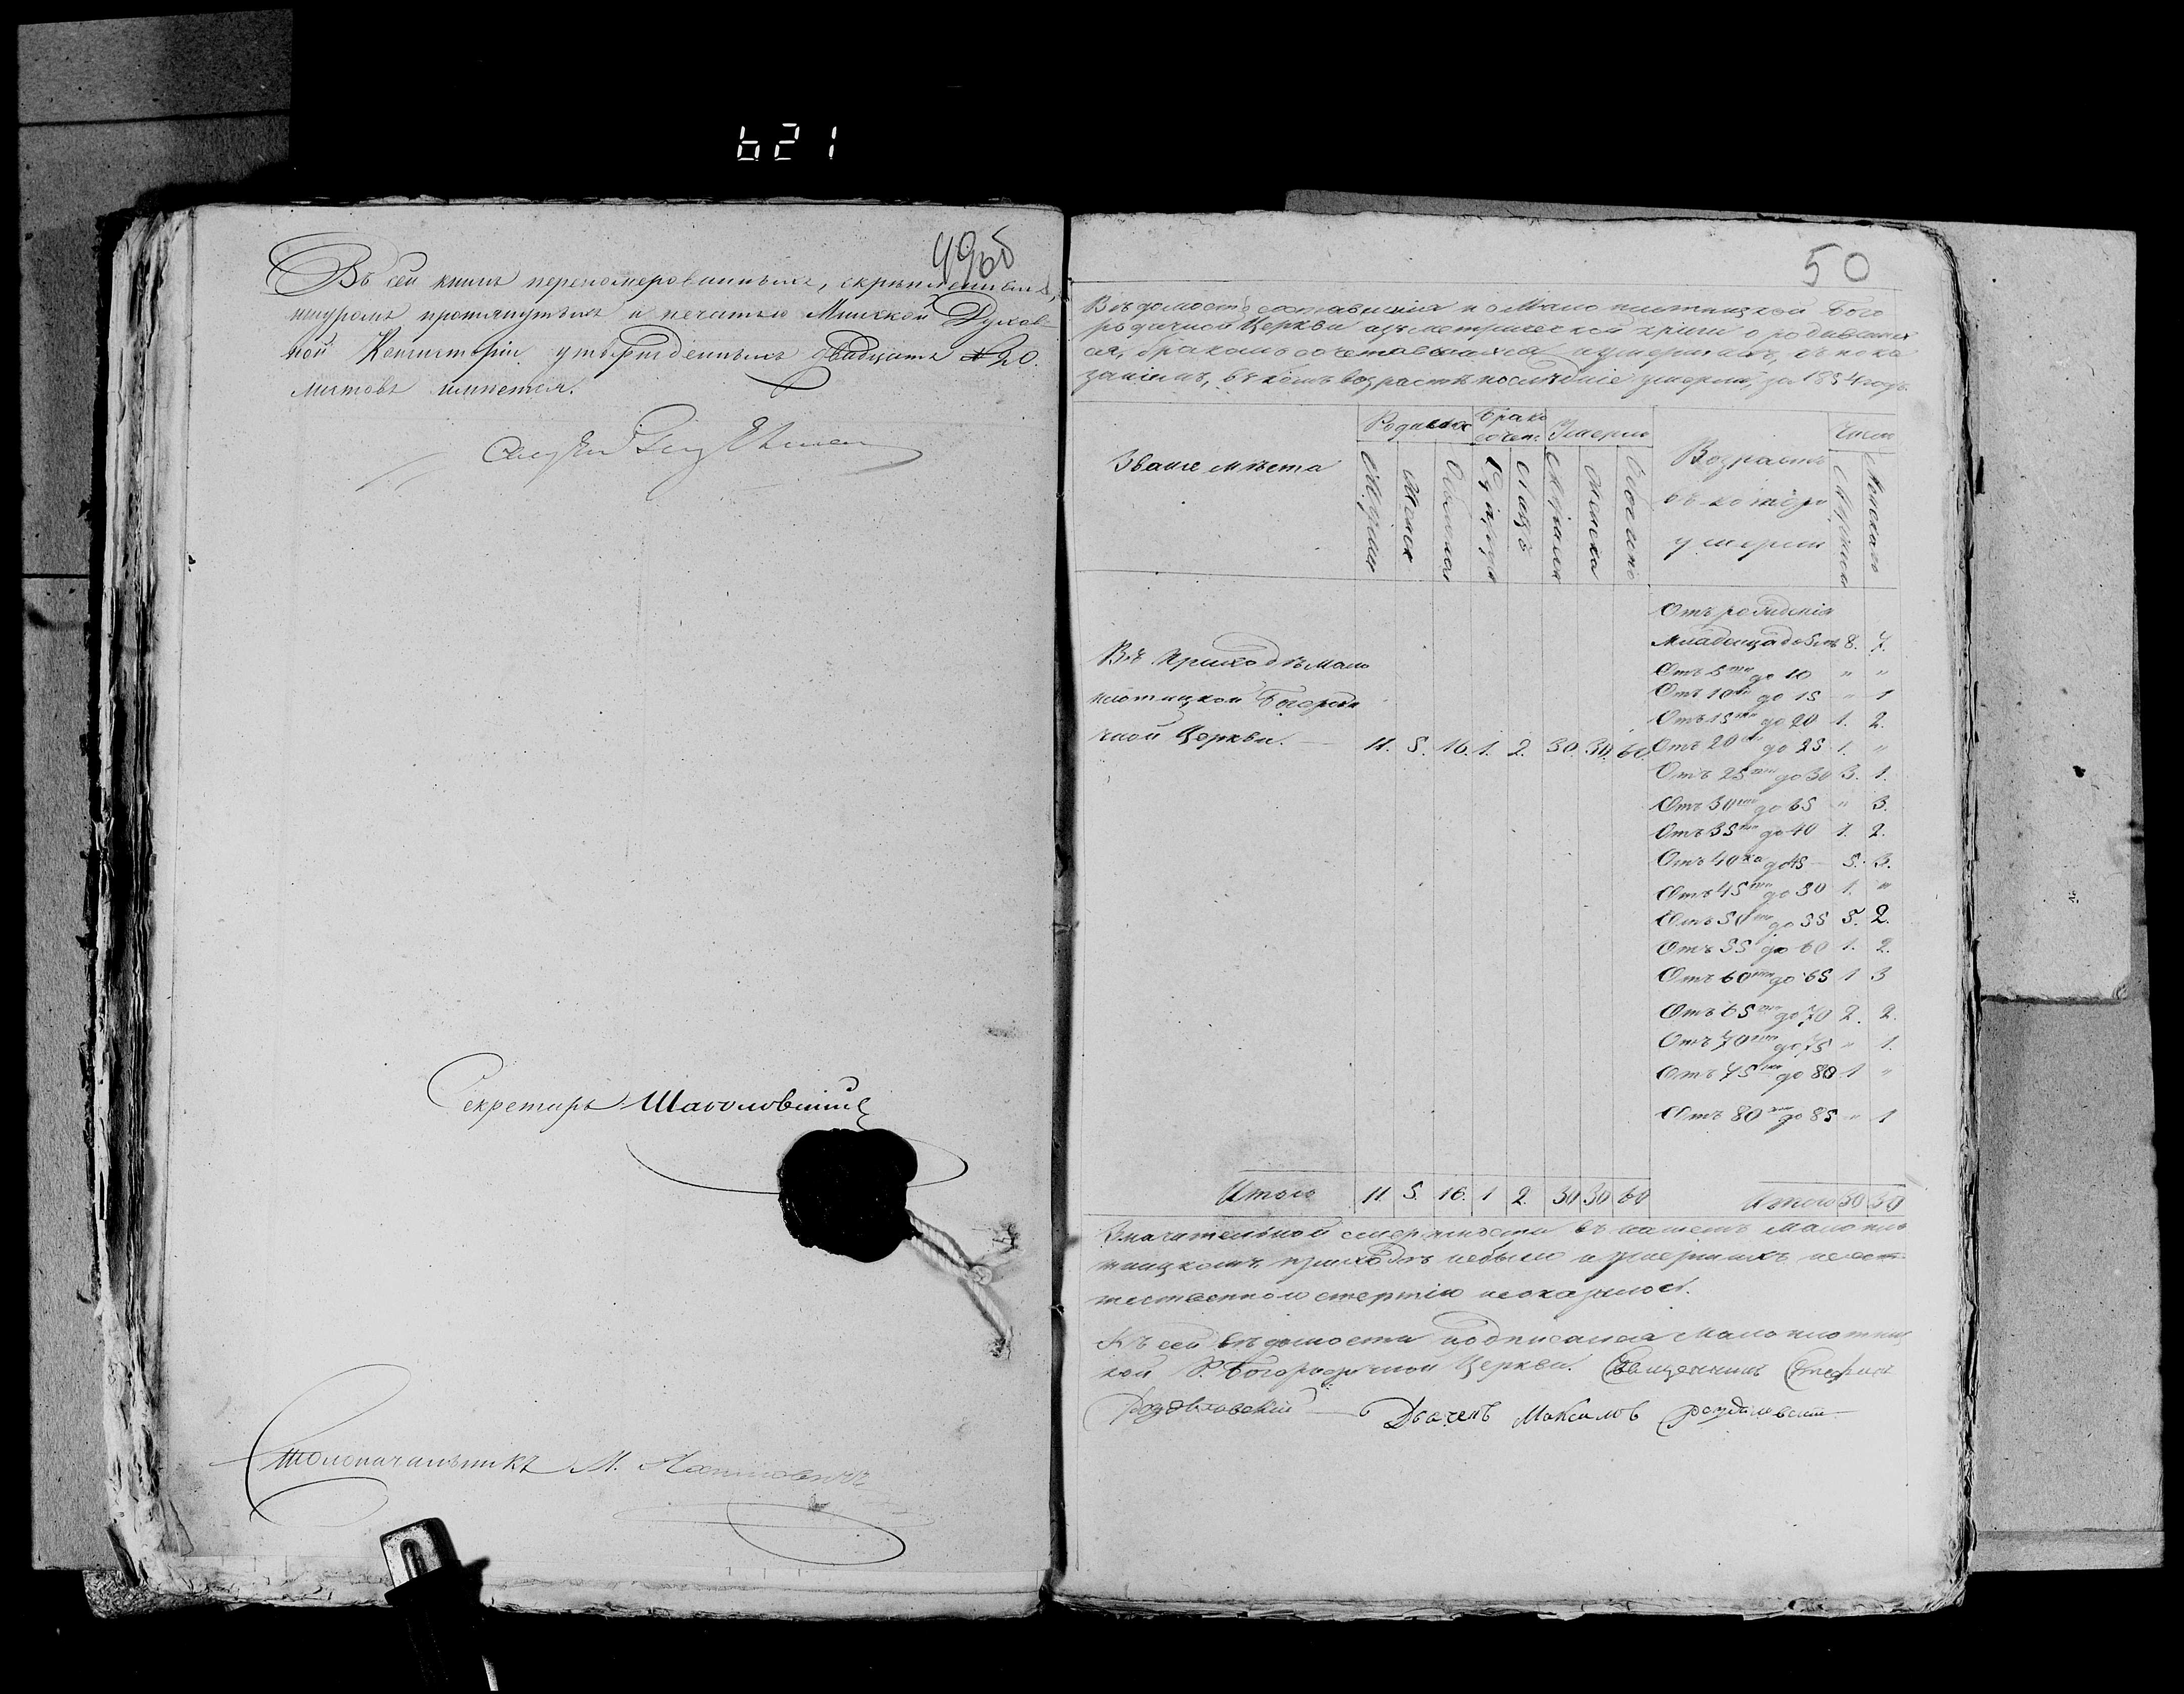 621
49об
Въ сей книгѣ перенумерованныхъ, скрѣпленныхъ,
шнуромъ протянутыхъ и печатью Минской Духов-
ной Консисторіи утвержденныхъ двадцать № 20.
листовъ имѣется.
Секретарь
Столоначальникъ М.
50
Вѣдомость составленная по Мало плотницкой Бого
родичной Церкви изъ метрической книги о родивших
ся, бракомъ сочетавшихся и умершихъ, съ пока
заніемъ, въ коемъ возрастѣ послѣдніе умерли, за 1834 годъ.
Званіе мѣста
Родилось
Брако сочет:
Умерло
Возрастъ въ которо умерли
Число
Женск
Обоего
Въ приходѣ Мало
плотницкой Богороди
чной Церкви. 11. 5. 16. 1. 2. 30. 30. 60.
Отъ рожденія
Младенца до 5 лѣтъ 8. 7.
Отъ 5ти до 10 " "
Отъ 10ти до 15 " 1
Отъ 15ти до 20 1. 2.
Отъ 20ти до 25 1. "
Отъ 25ти до 30 3. 1.
Отъ 30ти до 35 " 3.
Отъ 35ти до 40 1. 2.
Отъ 40ка до 45 5. 3.
Отъ 45ти до 50 1. "
Отъ 50ти до 55 5. 2.
Отъ 55 до 60 1. 2.
Отъ 60ти до 65 1 3
Отъ 65ти до 70 2. 2.
Отъ 70ти до 75 " 1.
Отъ 75ти до 80 1 "
Отъ 80ти до 85 " 1
Итого 11. 5. 16. 1 2 30 30 60 Итого 30 30
Значительной смертности въ нашемъ Мало пло
тницкомъ приходѣ небыло и умершихъ неест
ественною смертію неоказалось.
Къ сей вѣдомости подписался Мало плотниц
кой Р. Богородичной Церкви. Священникъ Стефанъ
Дьячекъ Максимъ